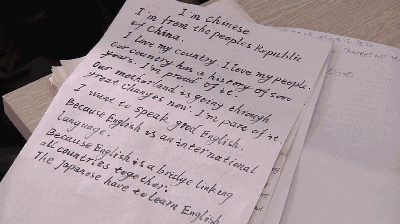 I'm Chinese
I'm from the people's Republic
of China.
I love my country. I love my people.
Our country has a history of 5000
years. I'm proud of it.
Our motherland is going through
great changes now. I'm part of it.
I want to speak good English.
Because English is an international
language.
Because English is a bridge linking
all countries together.
The Japanese have to learn English